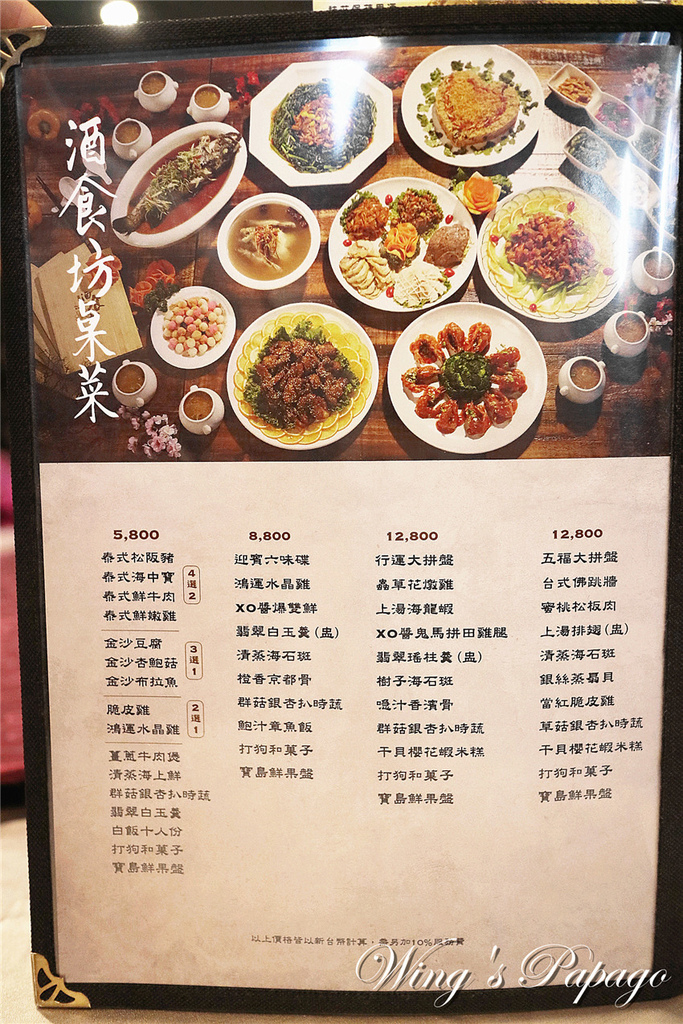 酒食坊桌菜
5,800
泰式松阪豬
泰式海中寶
泰式鮮牛肉
泰式鮮嫩雞
4選2
金沙豆腐
金沙杏鮑菇
金沙布拉魚
3選1
脆皮雞
鴻運水晶雞
2選1
薑蔥牛肉煲
清蒸海上鮮
群菇銀杏扒時蔬
翡翠白玉羹
白飯十人份
打狗和菓子
寶島鮮果盤
8,800
迎賓六味碟
鴻運水晶雞
XO醬爆雙鮮
翡翠白玉羹(盅)
清蒸海石斑
橙香京都骨
群菇銀杏扒時蔬
鮑汁章魚飯
打狗和菓子
寶島鮮果盤
12,800
行運大拼盤
蟲草花燉雞
上湯海龍蝦
XO醬鬼馬拼田雞腿
翡翠瑤柱羹(盅)
樹子海石斑
噫汁香濱骨
群菇銀杏扒時蔬
干貝櫻花蝦米糕
打狗和菓子
寶島鮮果盤
12,800
五福大拼盤
台式佛跳牆
蜜桃松板肉
上湯排翅(盅)
清蒸海石斑
銀絲蒸扇貝
當紅脆皮雞
草菇銀杏扒時蔬
干貝櫻花蝦米糕
打狗和菓子
寶島鮮果盤
以上價格皆以新台幣計算，需另加10%服務費
Wing's Papago